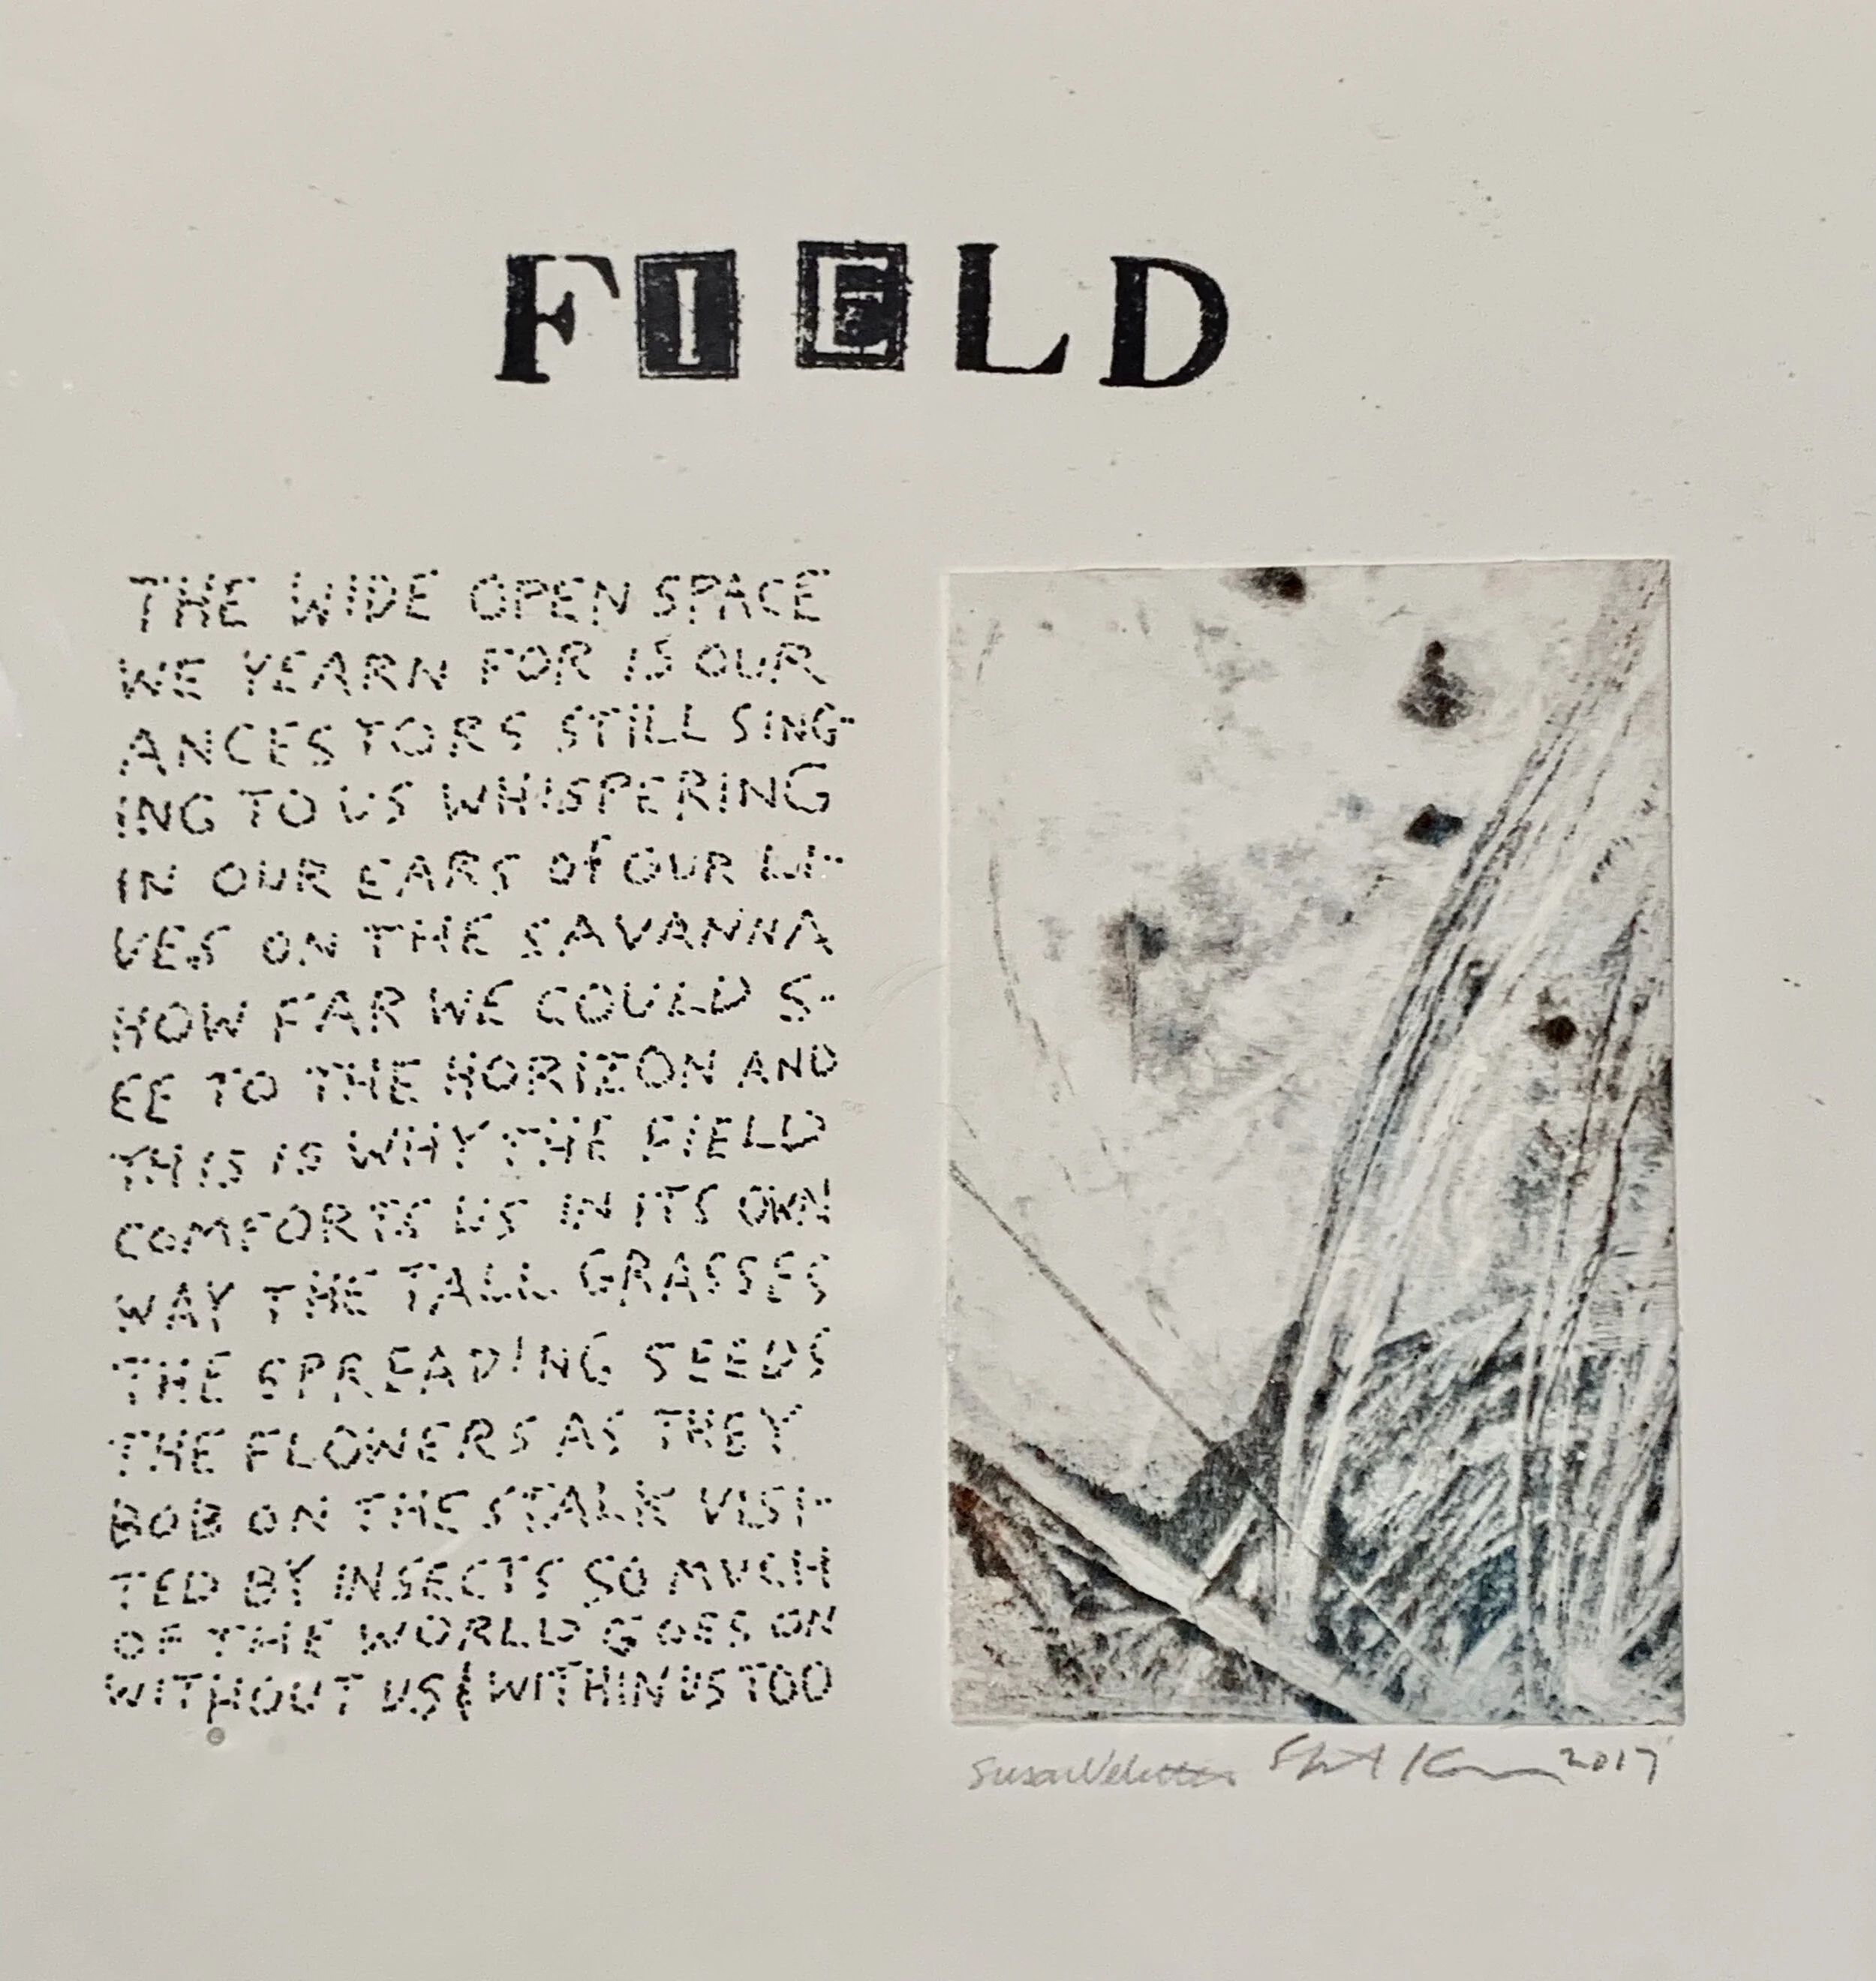 FIELD
THE WIDE OPEN SPACE
WE YEARN FOR IS OUR
ANCESTORS STILL SING-
ING TO US WHISPERING
IN OUR EARS Of OUR LI-
VES ON THE SAVANNA
HOW FAR WE COULD S-
EE TO THE HORIZON AND
THIS IS WHY THE FIELD
COMFORTS US IN ITS OWN
WAY THE TALL GRASSES
THE SPREADING SEEDS
THE FLOWERS AS THEY
BOB ON THE STALK VISI-
TED BY INSECTS SO MUCH
OF THE WORLD GOES ON
WITHOUT US & WITHIN US TOO
Susan 2017